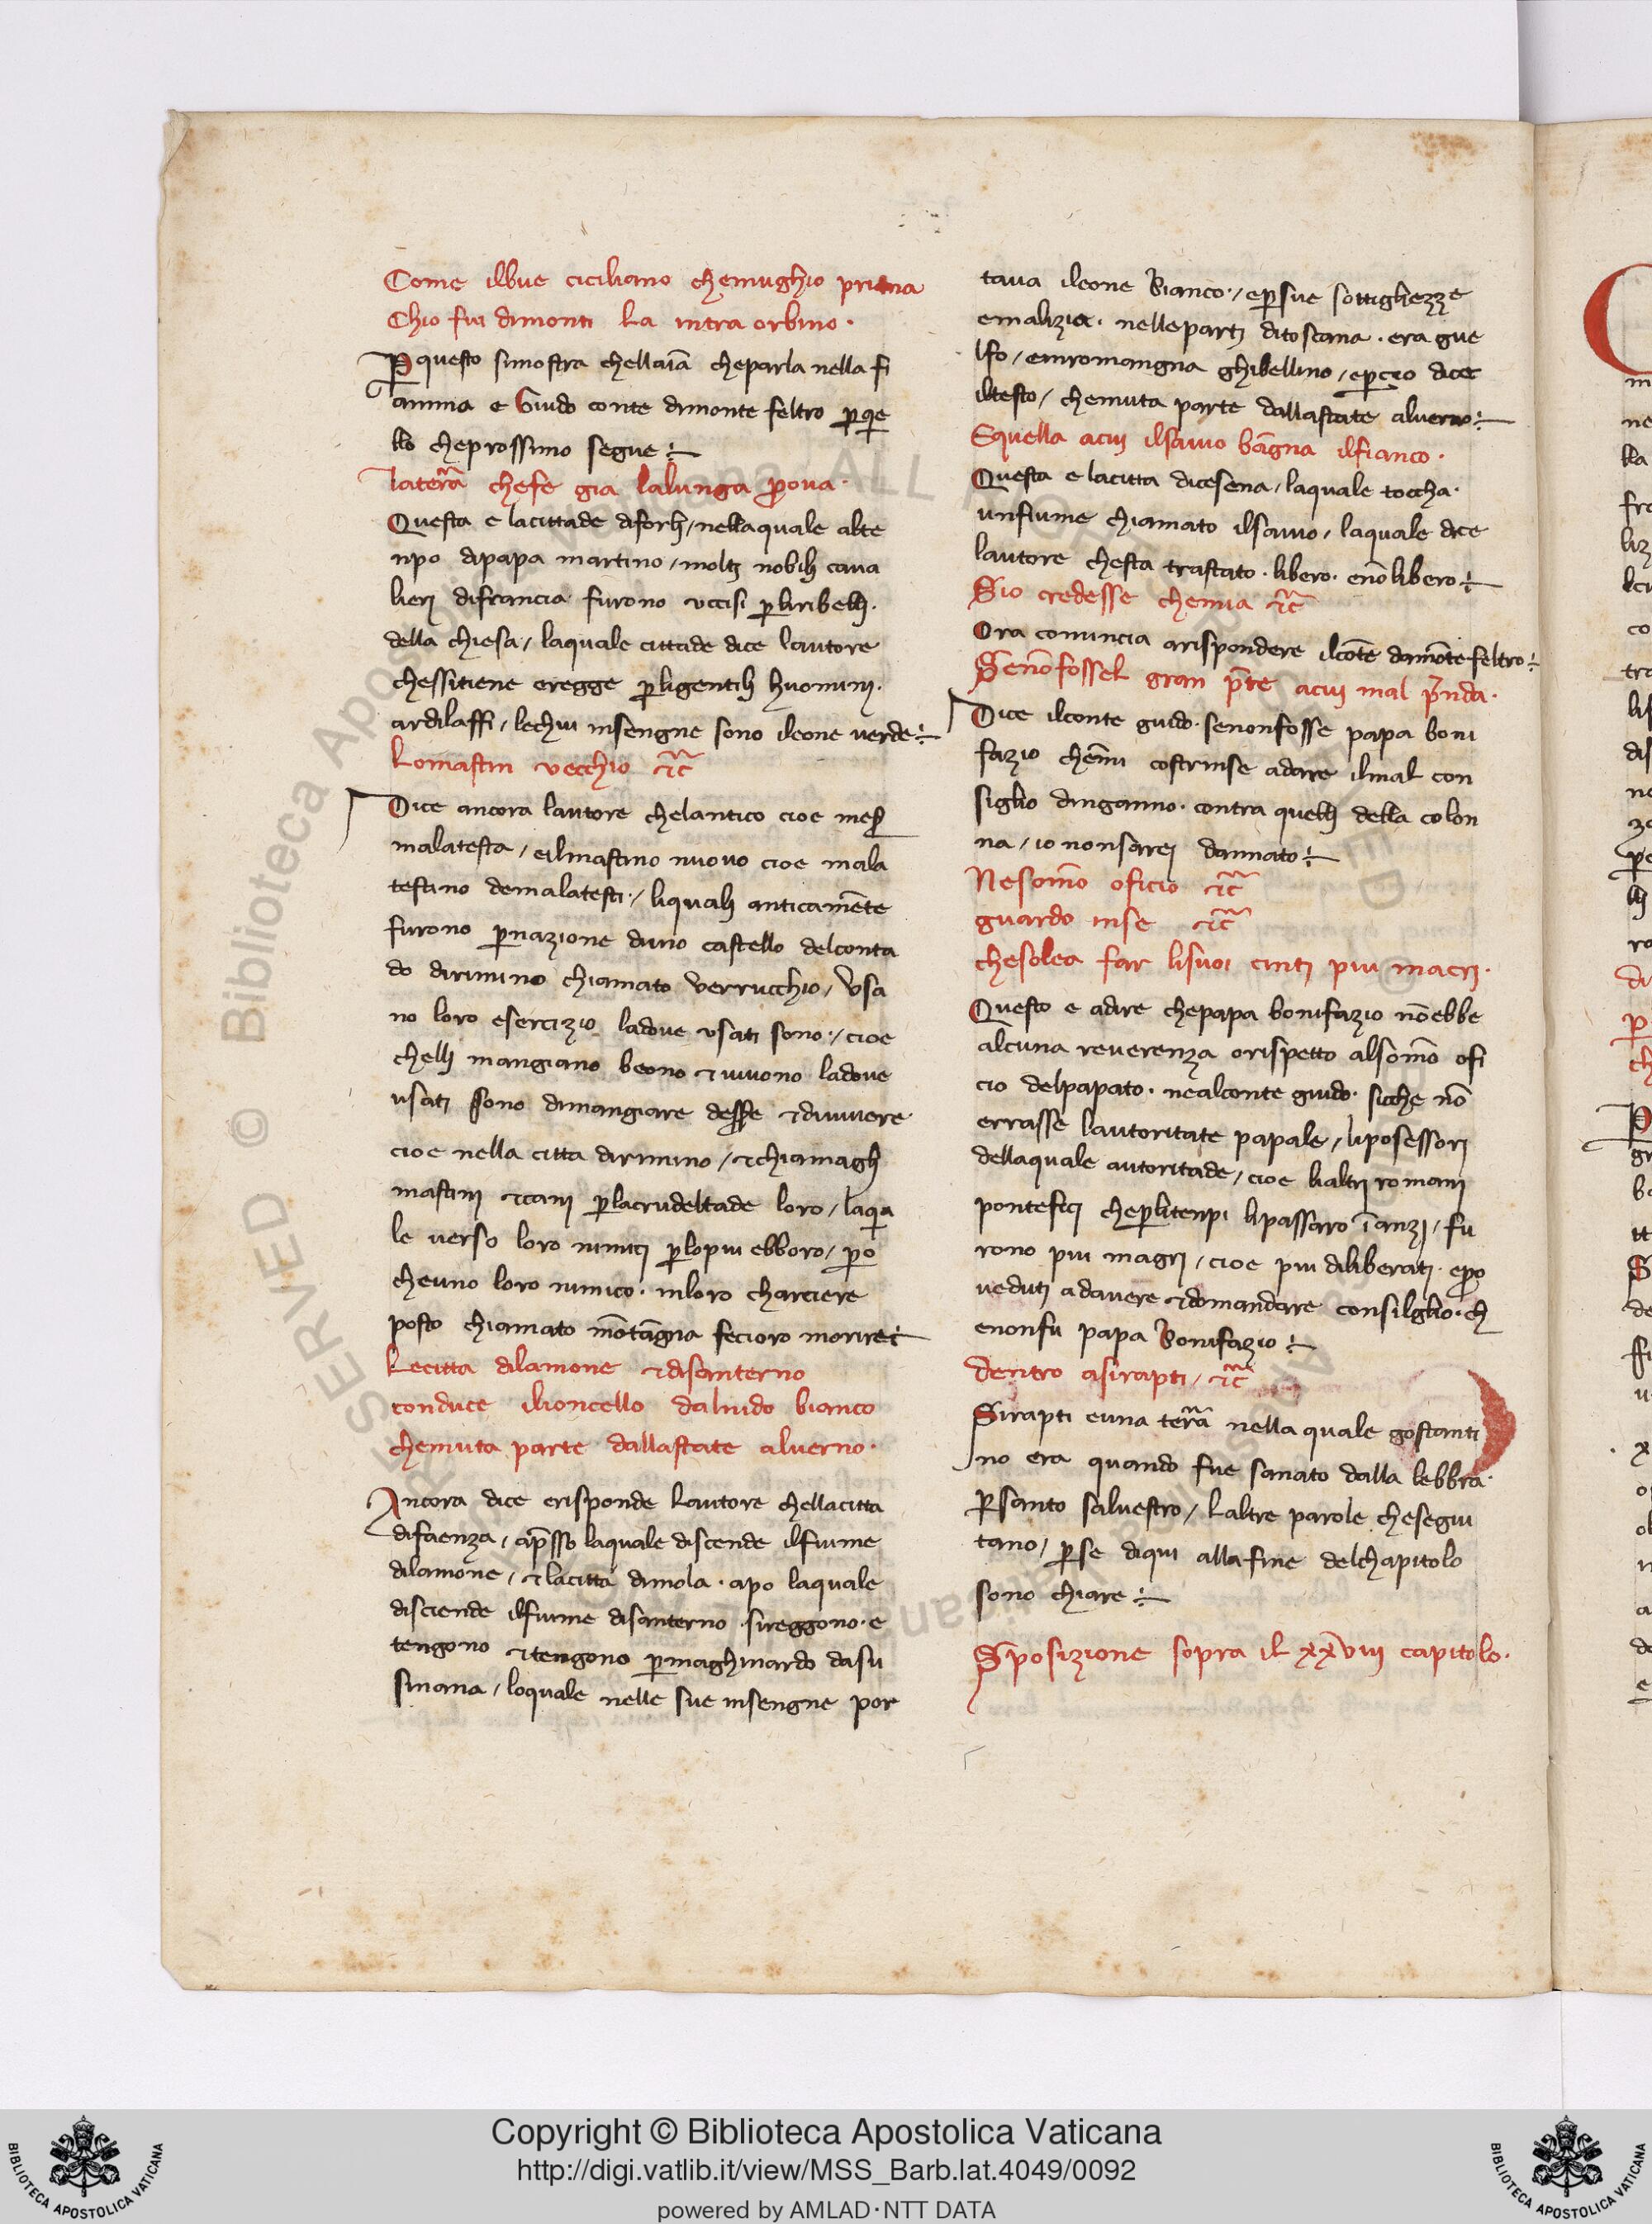 Come ilbue ciciliano chemughio prima
Chio fui dimonti la intra orbino.
P questo simostra chellaīa cheparla nella fi
amma e Guido conte dimonte feltro pque
llo cheprossimo segue
laterra chefe gia lalunga pova.
Questa e lacittade diforli, nellaquale alte
npo dipapa martino, molti nobili cava
lieri difrancia furono uccisi pliribelli.
della chiesa, laquale cittade dice lautore
chessitiene eregge pligentili huomini.
ardilaffi, lechui insengne sono ileone verde
Lomastin vecchio etc̄
Dice ancora lautore chelantico cioe meser
malatesta, eilmastino nuovo cioe mala
testino demalatesti, liquali anticamēte
furono pnazione duno castello delconta
do dirimino chiamato verrucchio, Usa
no loro esercizio ladove usati sono, cioe
chelli mangiano beono et vivono ladove
usati sono dimangiare et divivere
cioe nella citta dirimino, et chiamagli
mastini et cani placrudeltade loro, laqua
le verso loro nimici plopiu ebboro, po
cheuno loro nimico. inloro charciere
posto chiamato mōtāgna fecioro morire
Lecitta dilamone et disanterno
conduce ilioncello dalnido bianco
chemuta parte dallastate alverno.
Ancora dice erisponde lautore chellacitta
difaenza, apsso laquale discende ilfiume
dilamone, et lacitta dimola. apo laquale
disciende ilfiume disanterno. sireggono. e
tengono et tengono pmaghinardo dasu
sinana, loquale nelle sue insengne por
tava ileone bianco, epsue sottigliezze
emalizia. nelleparti ditoscana. era gue
lfo, einromangna ghibellino, epcio dice
iltesto, chemuta parte dallastate alverno
Equella acui ilsavio bāgna ilfianco.
Questa e lacitta dicesena, laquale toccha.
unfiume chiamato ilsavio, laquale dice
lautore chesta trastato. libero. enō libero
Sio credesse chemia etc̄
Ora comincia arispondere ilcōte damōtefeltro
Senōfossel gran pēte acui mal pnda.
Dice ilconte guido. senonfosse papa boni
fazio chemi costrinse adare ilmal con
siglio dinganno. contra quelli della colon
na, io nonsarei dannato
Nesomō oficio etc̄
guardo inse etc̄
chesolea far lisuoi cinti piu macri.
Questo e adire chepapa bonifazio nōebbe
alcuna reverenza orispetto alsomō ofi
cio delpapato. nealconte guido. sicche nō
errasse lautoritate papale, liposessori
dellaquale autoritade, cioe lialtri romani
pontefici cheplitenpi lipassaro īanzi, fu
rono piu magri, cioe piu diliberati. epo
veduti adavere et domandare consilglio. ch
enonfu papa bonifazio
dentro asirapti, etc̄
Sirapti euna terra nella quale gostanti
no era quando fue sanato dalla lebbra.
Psanto salvestro, laltre parole chesegui
tano, pse diqui allafine delchapitolo
sono chiare
Sposizione sopra il xxviii capitolo.
Copyright © Biblioteca Apostolica Vaticana
http://digi.vatlib.it/view/MSS_Barb.lat.4049/0092
powered by AMLAD·NTT DATA
BIBLIOTECA APOSTOLICA VATICANA
BIBLIOTECA APOSTOLICA VATICANA